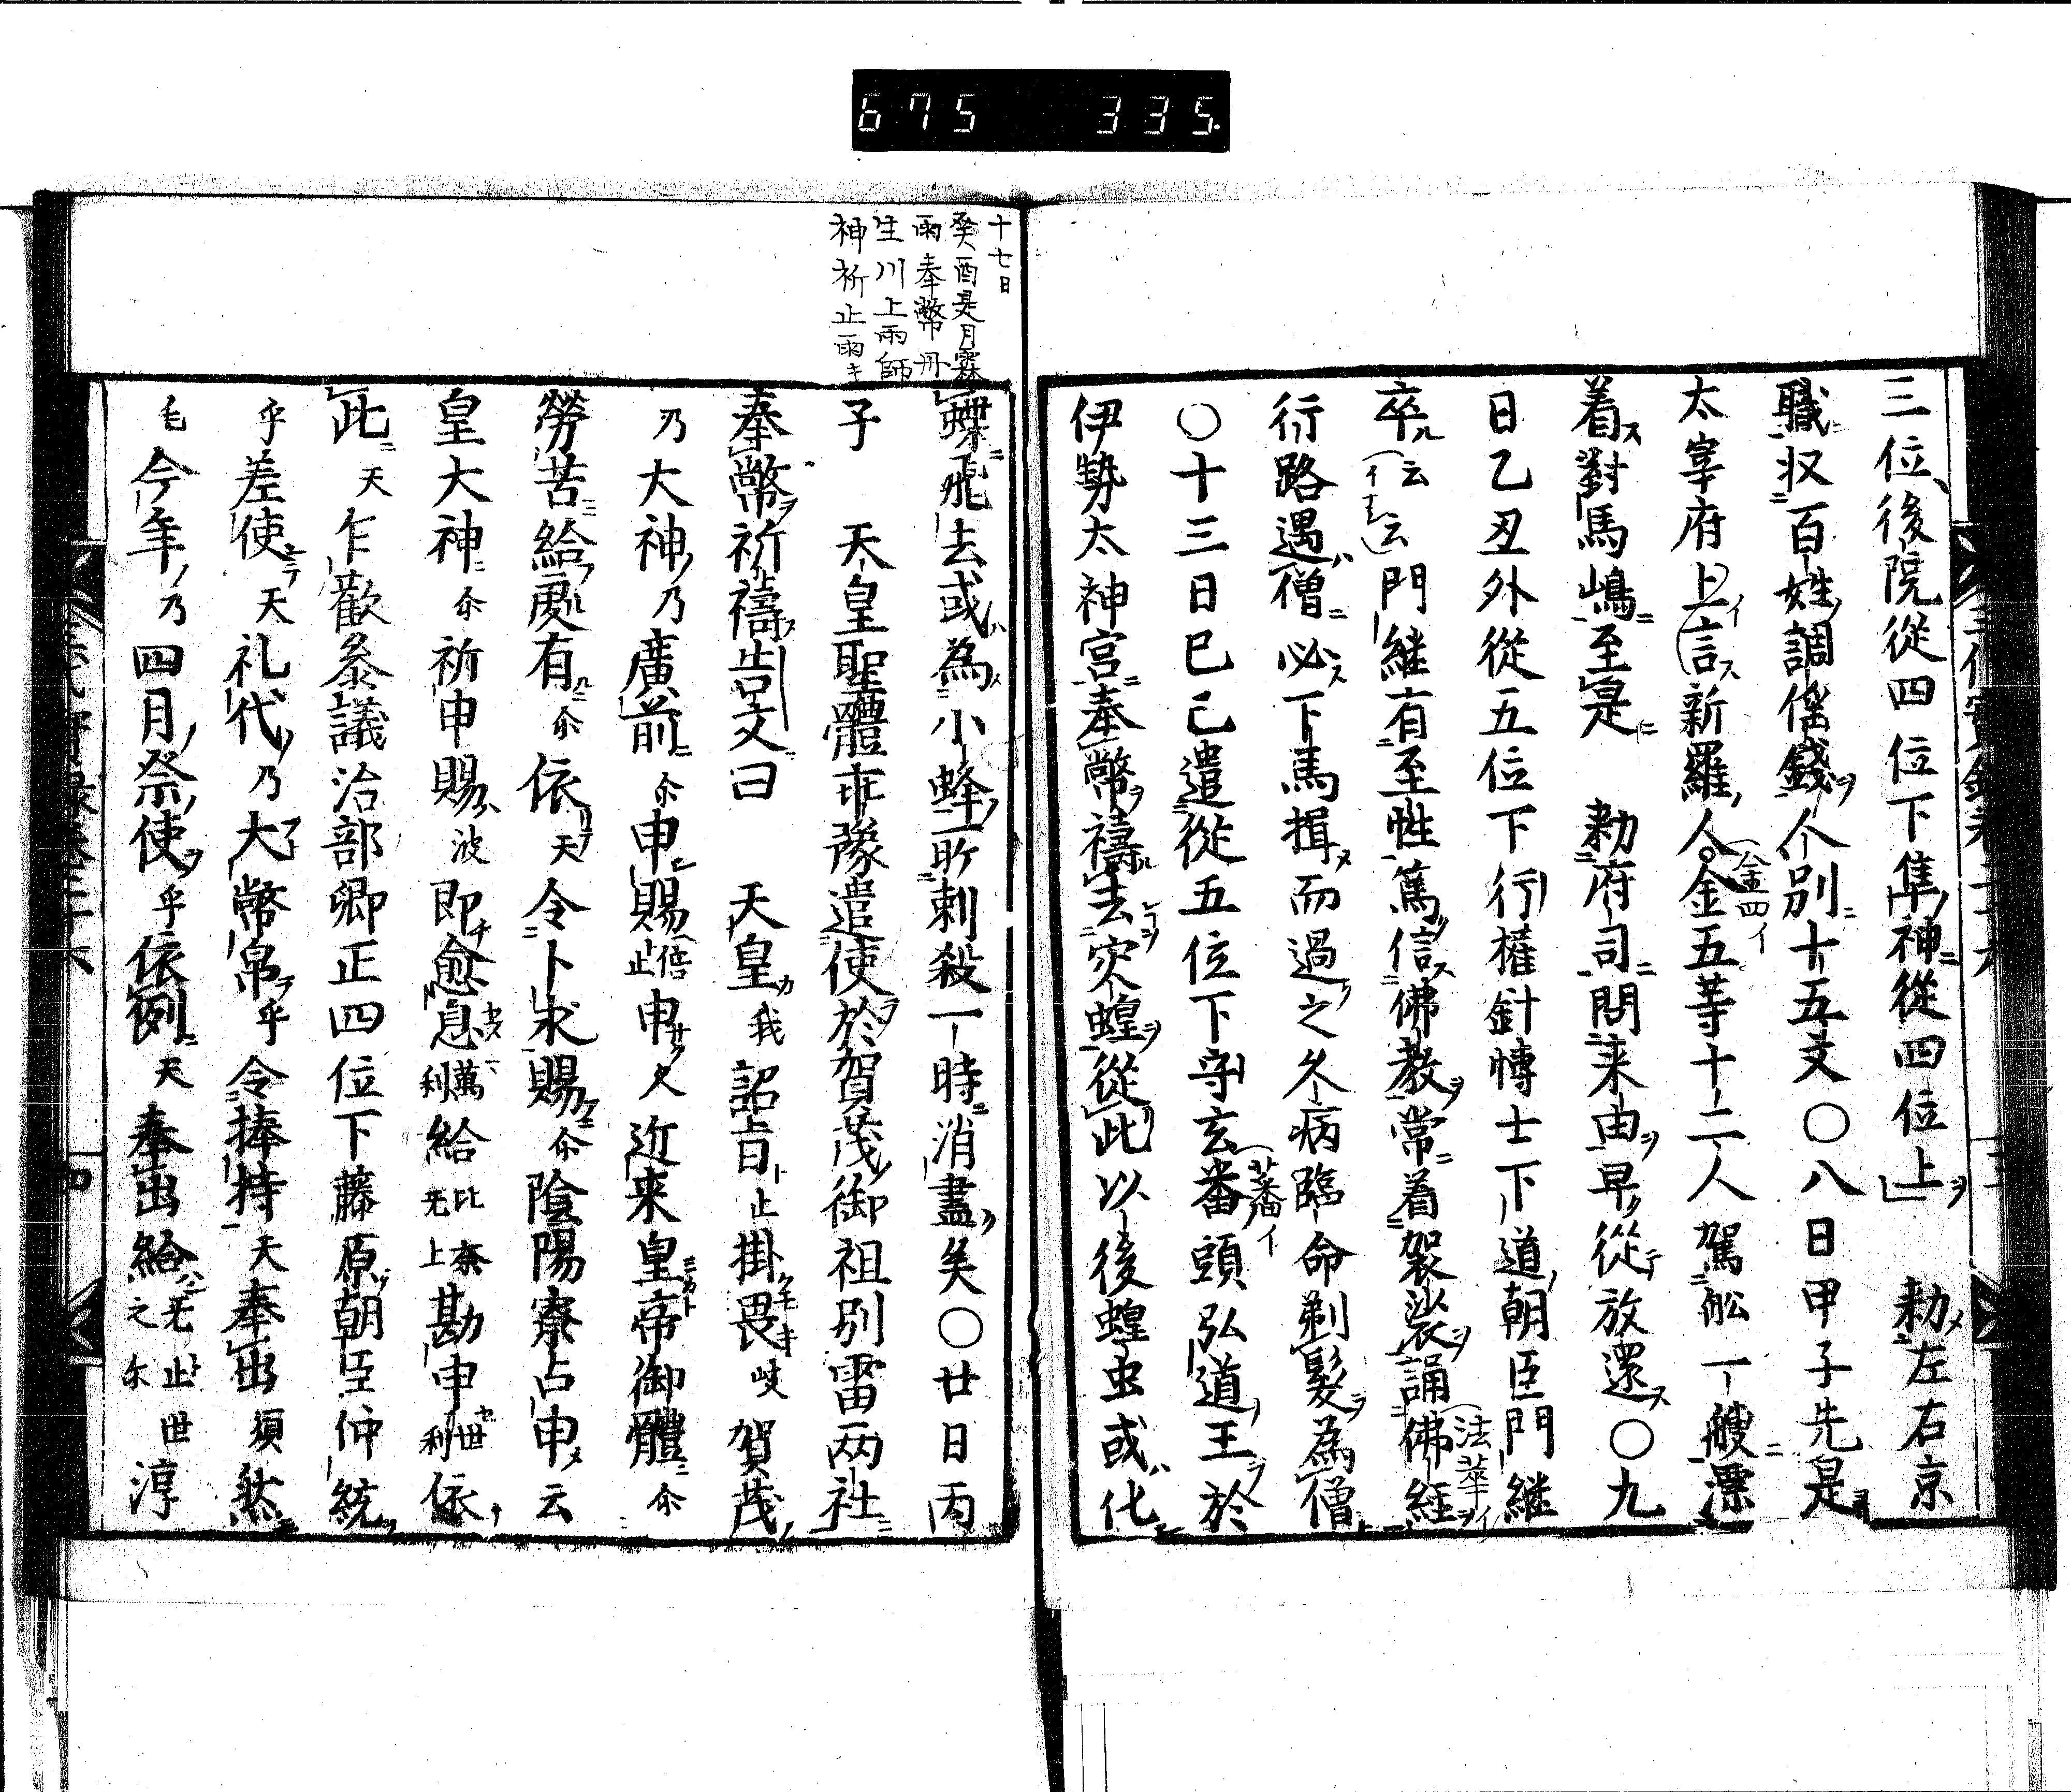 675 335.
三位後院從四位下隼神從四位上 勅左右京
職収百姓調徭錢人別十五文〇八日甲子先是
太宰府上言新羅人金五等十二人駕舩一艘漂
着對馬嶋至是 勅府司問来由早從放還〇九
日乙丑外從五位下行權針博士下道朝臣門継
卒云云門継有至性篤信佛教常着袈裟誦佛経
行路遇僧必下馬揖而過之久病臨命剃髮為僧
〇十三日巳己遣從五位下守玄番頭弘道王於
伊勢太神宮奉幣禱去灾蝗從此以後蝗虫或化
蝶飛去或為小蜂所刺殺一時消盡矣〇廿日丙
子 天皇聖體乖豫遣使於賀茂御祖別雷两社
奉幣祈禱告文曰 天皇我詔旨止掛畏岐賀茂
乃大神乃廣前尓申賜倍止申久近来皇帝御體尓
勞苦給處有尓依天令卜求賜尓陰陽寮占申云
皇大神尓祈申賜波即愈息萬利給比奈无上勘申世利依
此天乍歡叅議治部卿正四位下藤原朝臣仲統
乎差使天礼代乃大幣帛乎令捧持天奉出須然
毛今年乃四月祭使乎依例天奉出給之尓无止世淳
十七日
癸酉是月霖
雨奉幣丹
生川上雨師
神祈止雨キ